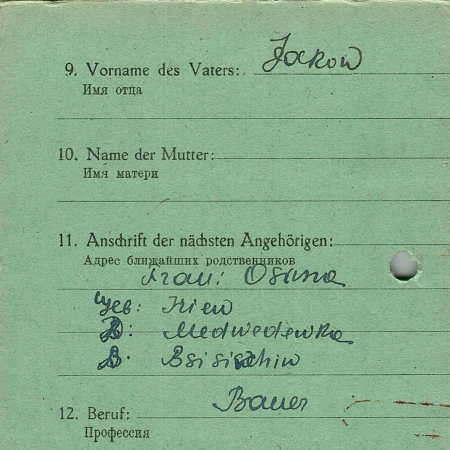 9. Vorname des Vaters: Jakow
Имя отца
10. Name der Mutter:
Имя матери
11. Anschrift der nächsten Angehörigen:
Адрес ближайших родственников
Frau: Oxana
Geb: Kiew
D: Medwedewka
B.
12. Beruf: Bauer
Профессия